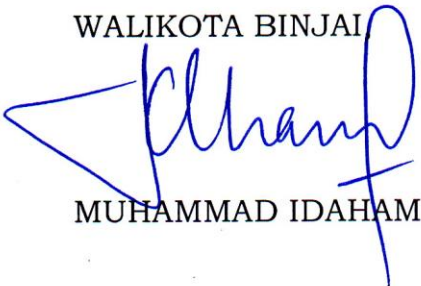 WALIKOTA BINJAI
MUHAMMAD IDAHAM